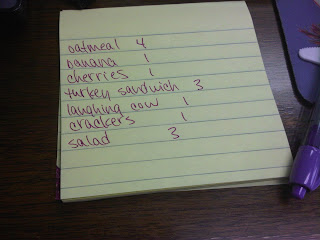 oatmeal 4
banana 1
cherries 1
turkey sandwich 3
laughing cow 1
crackers 1
salad 3